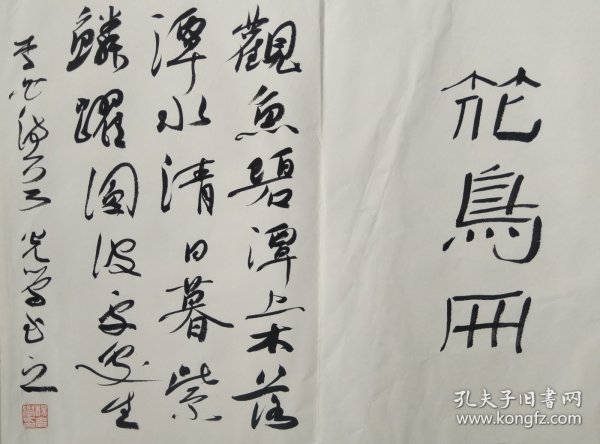 花鳥冊
觀魚碧潭上木落
潭水清日暮紫
鱗躍圓波處處生
李白詩 書之
孔夫子旧书网
www.kongfz.com